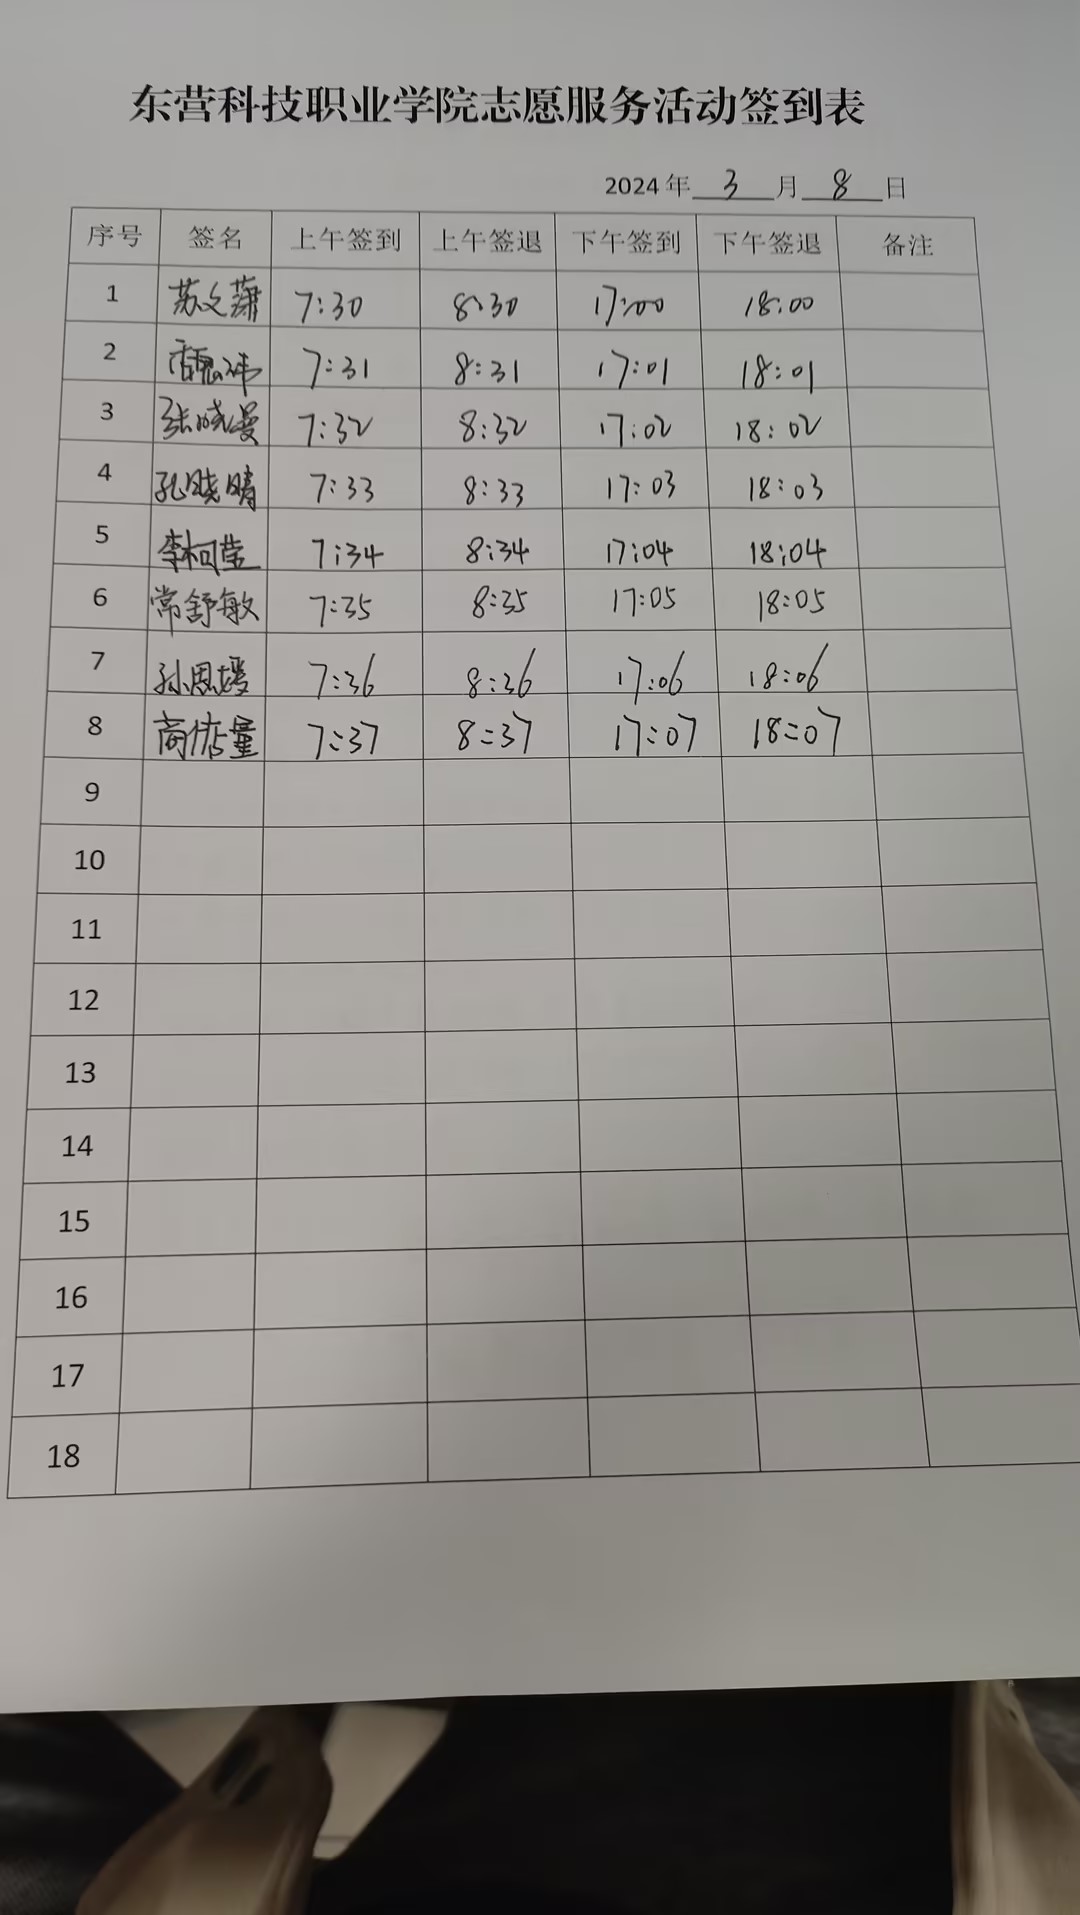 东营科技职业学院志愿服务活动签到表
2024 年 3 月 8 日
序号 签名 上午签到 上午签退 下午签到 下午签退 备注
1 苏文 7:30 8:30 17:00 18:00
2 7:31 8:31 17:01 18:01
3 张晓曼 7:32 8:32 17:02 18:02
4 孔晓晴 7:33 8:33 17:03 18:03
5 李柯莹 7:34 8:34 17:04 18:04
6 常舒敏 7:35 8:35 17:05 18:05
7 孙思媛 7:36 8:36 17:06 18:06
8 7:37 8:37 17:07 18:07
9
10
11
12
13
14
15
16
17
18